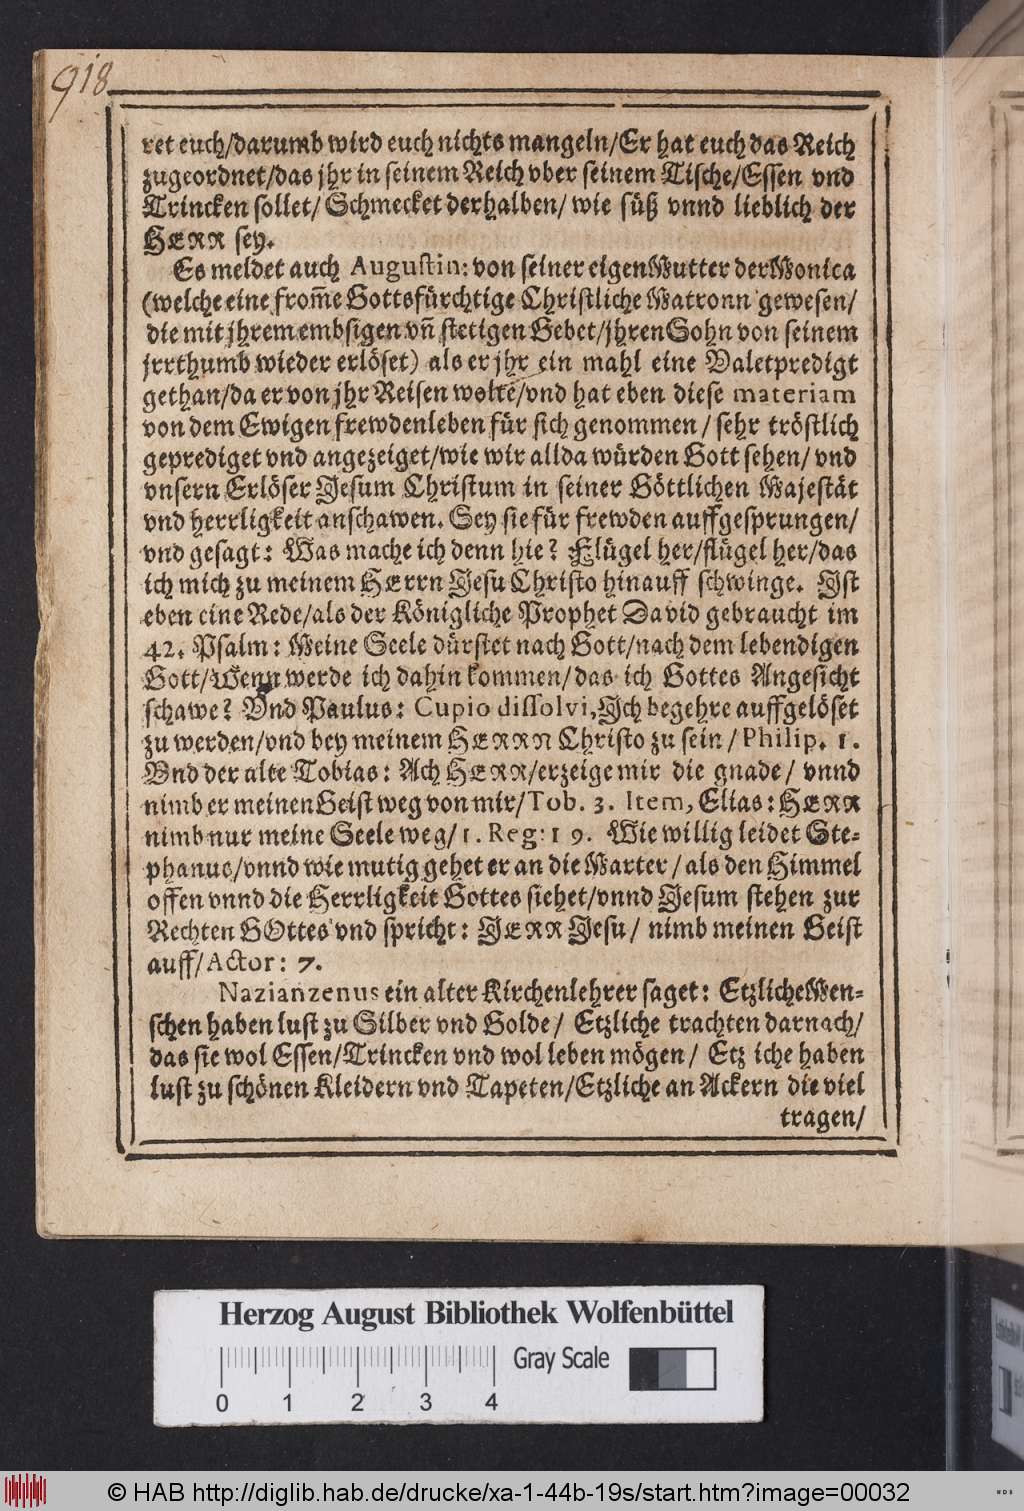 918
ret euch/darumb wird euch nichts mangeln/Er hat euch das Reich
zugeordnet/das jhr in seinem Reich vber seinem Tische/Essen vnd
Trincken sollet/ Schmecket derhalben/ wie süß vnnd lieblich der
HERR sey.
Es meldet auch Augustin: von seiner eigen Mutter der Monica
(welche eine from̃e Gottsfürchtige Christliche Matronn gewesen/
die mit jhrem embsigen vñ stetigen Gebet/jhren Sohn von seinem
jrrthumb wieder erlöset) als er jhr ein mahl eine Valetpredigt
gethan/da er von jhr Reisen wolte/vnd hat eben diese materiam
von dem Ewigen frewdenleben für sich genommen/ sehr tröstlich
geprediget vnd angezeiget/wie wir allda würden Gott sehen/ vnd
vnsern Erlöser Jesum Christum in seiner Göttlichen Majestät
vnd herrligkeit anschawen. Sey sie für frewden auffgesprungen/
vnd gesagt: Was mache ich denn hie? Flügel her/flügel her/das
ich mich zu meinem HErrn Jesu Christo hinauff schwinge. Jst
eben eine Rede/als der Königliche Prophet David gebraucht im
42. Psalm: Meine Seele dürstet nach Gott/nach dem lebendigen
Gott/Wenn werde ich dahin kommen/das ich Gottes Angesicht
schawe? Vnd Paulus: Cupio dissolvi, Jch begehre auffgelöset
zu werden/vnd bey meinem HERRN Christo zu sein/Philip. 1.
Vnd der alte Tobias: Ach HERR/erzeige mir die gnade/ vnnd
nimb er meinen Geist weg von mir/Tob. 3. Item, Elias: HERR
nimb nur meine Seele weg/1. Reg: 19. Wie willig leidet Ste-
phanus/vnnd wie mutig gehet er an die Marter/ als den Himmel
offen vnnd die Herrligkeit Gottes siehet/vnnd Jesum stehen zur
Rechten GOttes vnd spricht: HERR Jesu/ nimb meinen Geist
auff/Actor: 7.
Nazianzenus ein alter Kirchenlehrer saget: Etzliche Men-
schen haben lust zu Silber vnd Golde/ Etzliche trachten darnach/
das sie wol Essen/Trincken vnd wol leben mögen/ Etz iche haben
lust zu schönen Kleidern vnd Tapeten/Etzliche an Ackern die viel
tragen/
Herzog August Bibliothek Wolfenbüttel
Gray Scale
0 1 2 3 4
© HAB http://diglib.hab.de/drucke/xa-1-44b-19s/start.htm?image=00032